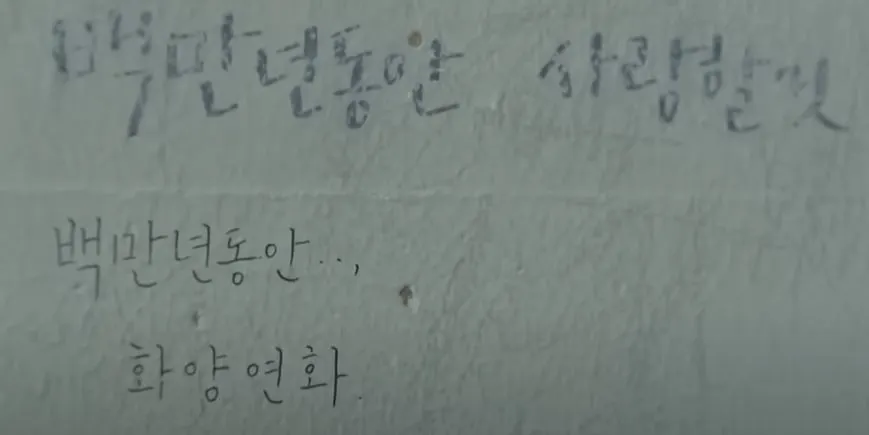 백만년동안 사랑할것
백만년동안..,
화양연화.